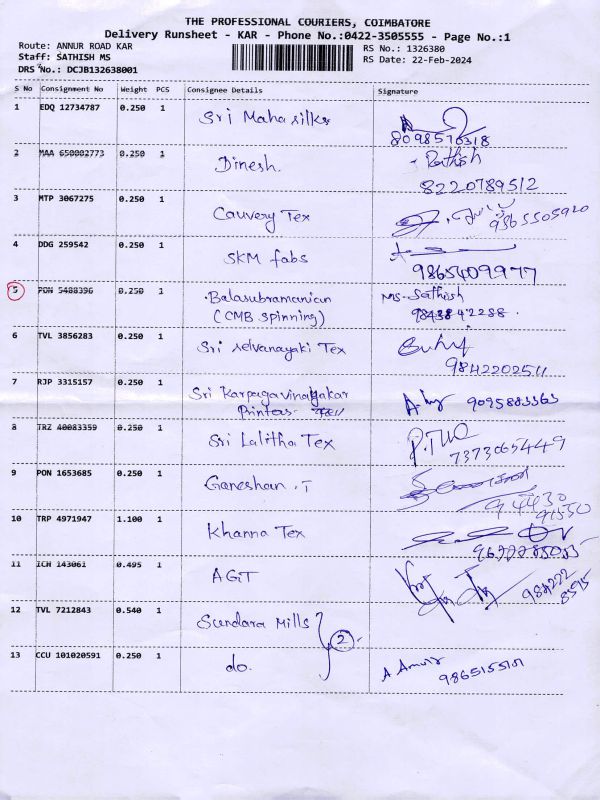 THE PROFESSIONAL COURIERS, COIMBATORE
Delivery Runsheet - KAR - Phone No.:0422-3505555 - Page No.:1
Route: ANNUR ROAD KAR RS No.: 1326380
Staff: SATHISH MS RS Date: 22-Feb-2024
DRS No.: DCJB132638001
S No Consignment No Weight PCS Consignee Details Signature
1 EDQ 12734787 0.250 1 Sri Maha silks
8098576318
2 MAA 650002773 0.250 1 Dinesh. Rathish
8220789512
3 MTP 3067275 0.250 1 Cauvery Tex 9865505920
4 DDG 259542 0.250 1 SKM fabs
9865409977
5 PON 5488396 0.250 1 Balasubramanian Ms. Sathish
(CMB Spinning) 9843842288.
6 TVL 3856283 0.250 1 Sri selvanayaki Tex
9842202511
7 RJP 3315157 0.250 1 Sri Karpagavinayakar 9095883363
Printers
8 TRZ 40083359 0.250 1 Sri Lalitha Tex
7373065449
9 PON 1653685 0.250 1 Ganeshan .T
94430
91530
10 TRP 4971947 1.100 1 Khanna Tex
11 ICH 143061 0.495 1 AGIT
984222
8595
12 TVL 7212843 0.540 1 Sundara Mills
2
13 CCU 101020591 0.250 1 do. A
9865155101